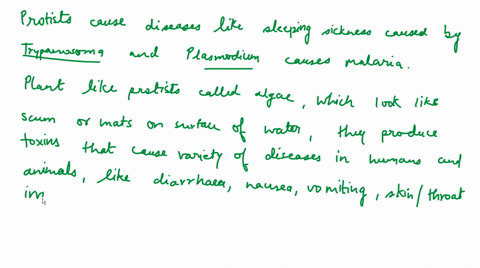 Protists cause diseases like sleeping sickness caused by
Trypanosoma and Plasmodium causes malaria.
Plant like protists called algae, which look like
scum or mats on surface of water, they produce
toxins that cause variety of diseases in humans and
animals, like diarrhaea, nausea, vomiting, skin/throat
irr